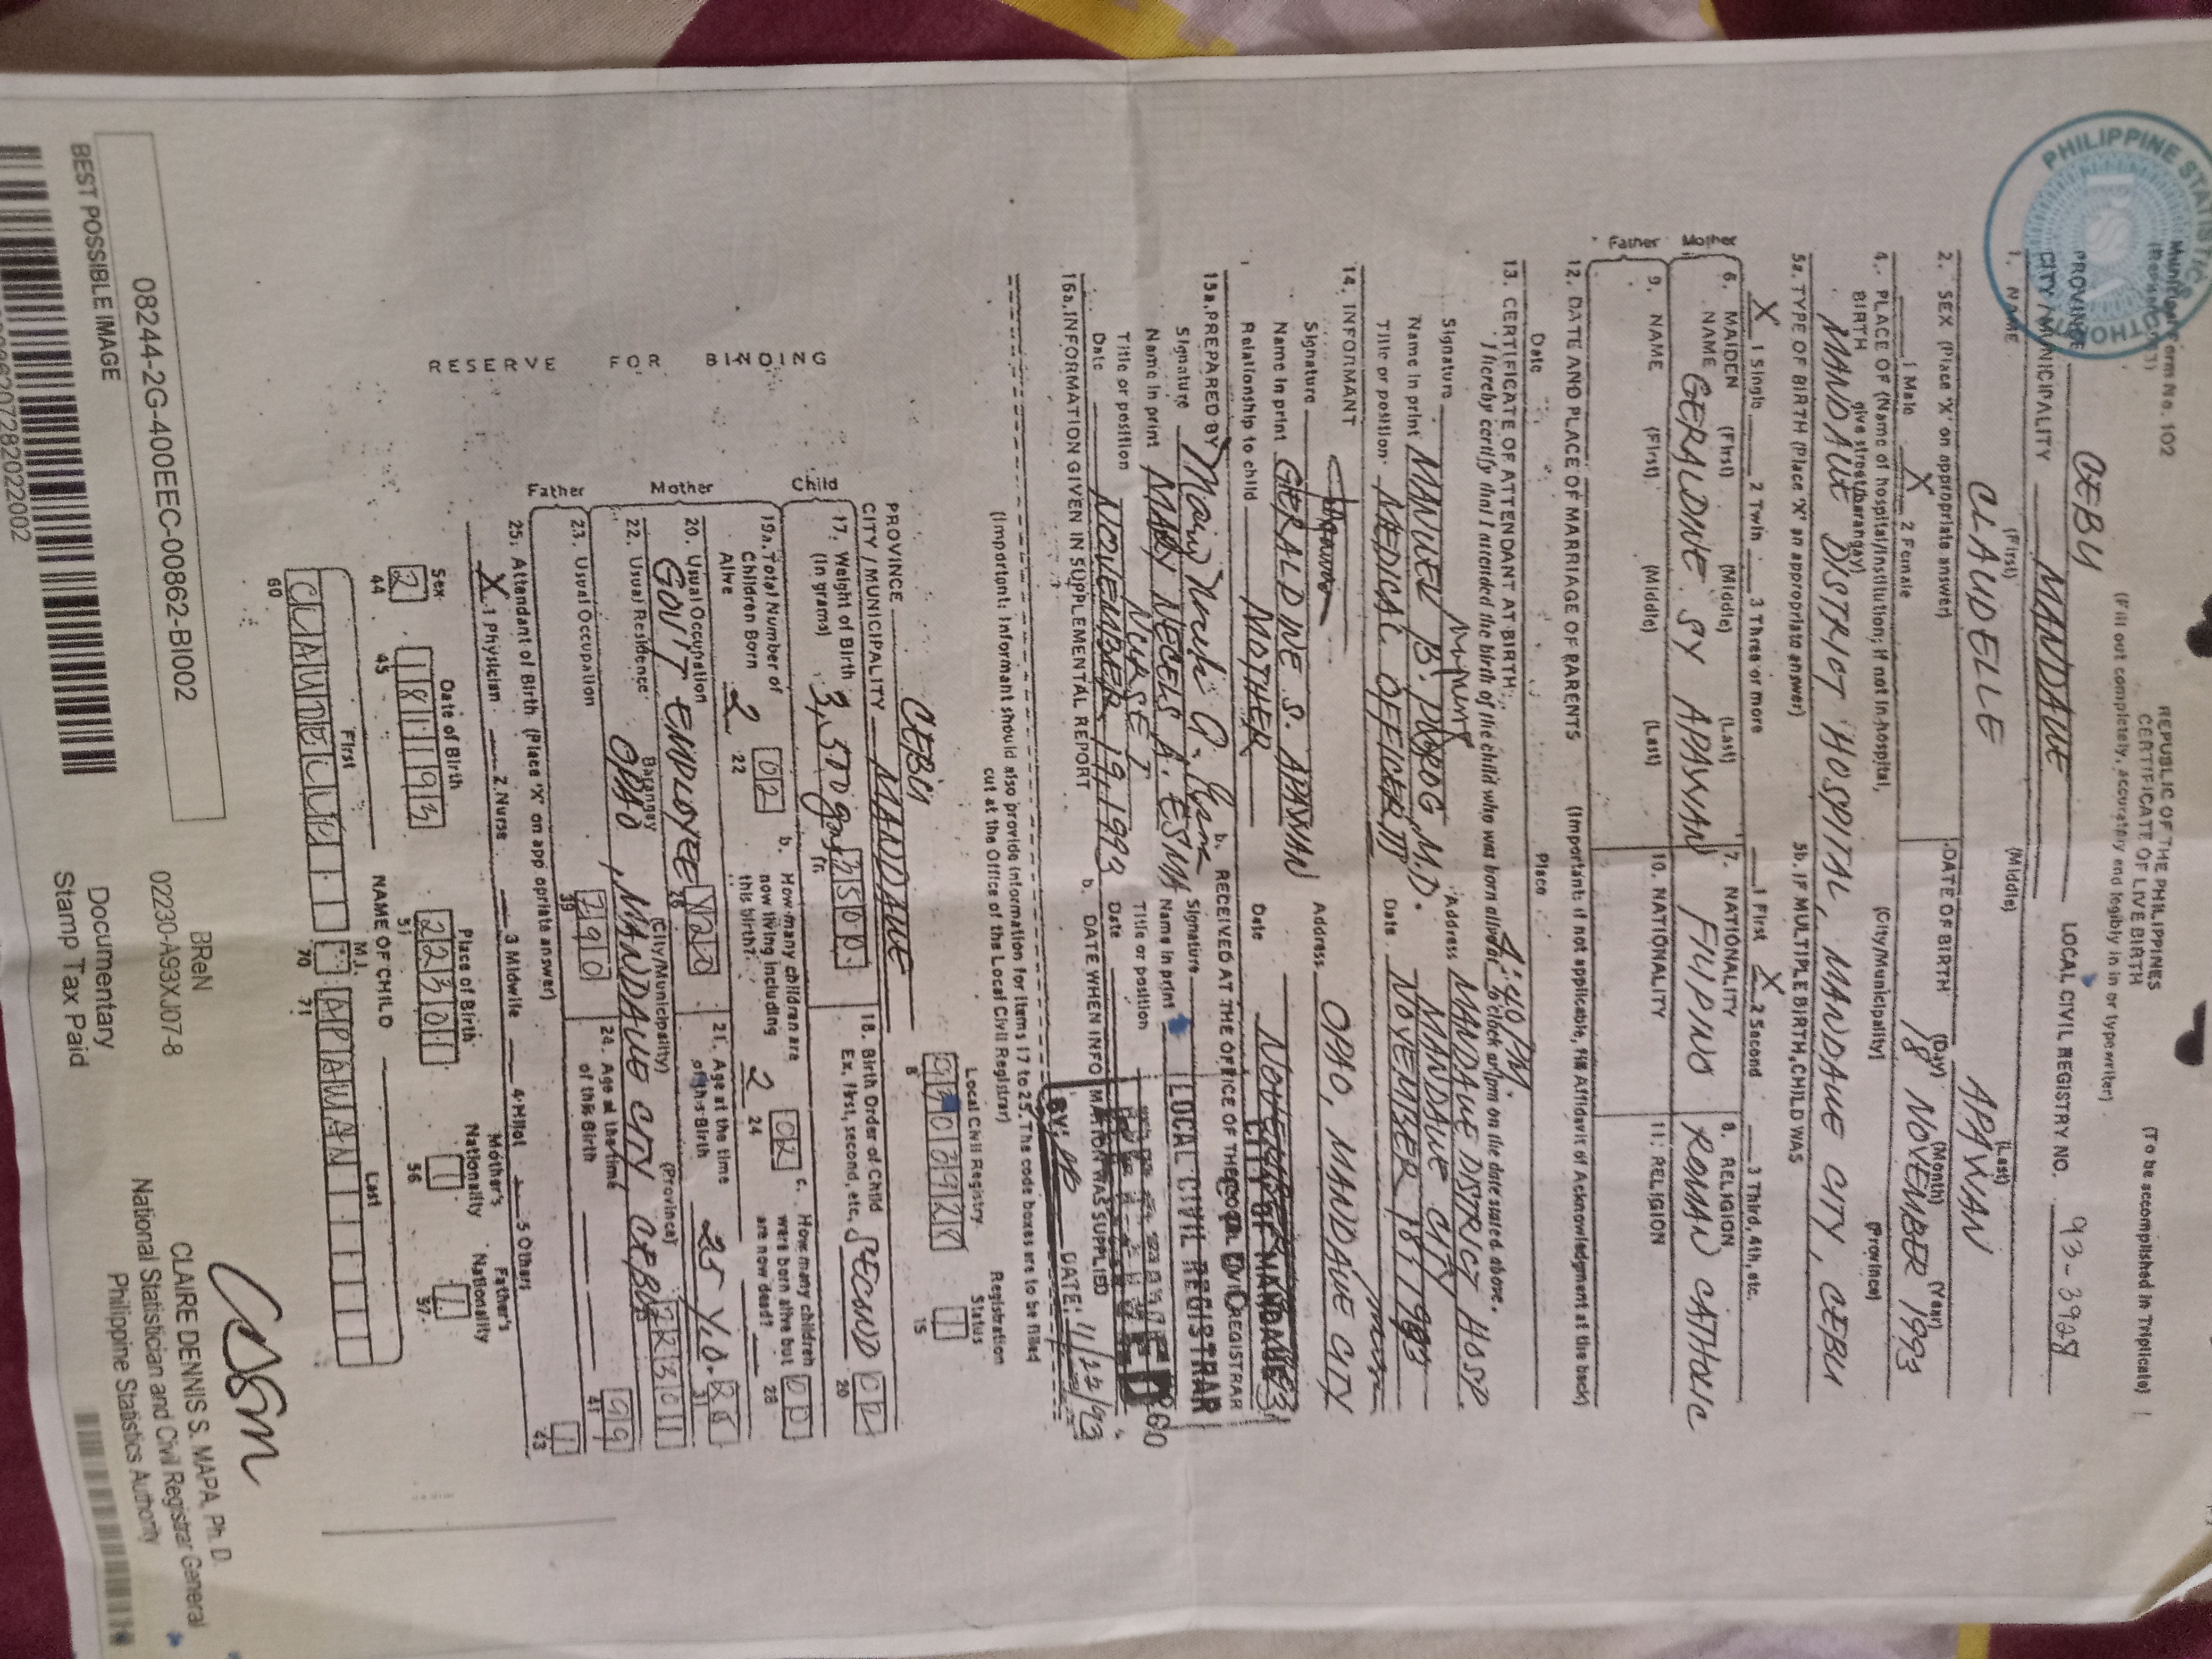 Municipal Form No. 102
REPUBLIC OF THE PHILIPPINES
CERTIFICATE OF LIVE BIRTH
(To be accomplished in Triplicate)
(Fill out completely, accurately and legibly in in or typewriter)
PHILIPPINE STATISTICS AUTHORITY
PSA
PROVINCE CEBU
CITY/MUNICIPALITY MANDAUE
LOCAL CIVIL REGISTRY NO. 93-3928
1. NAME (First) (Middle) (Last)
CLAUDELLE APAWAN
2. SEX (Place 'X' on appropriate answer)
1 Male X 2 Female
DATE OF BIRTH (Day) (Month) (Year)
18 NOVEMBER 1993
4. PLACE OF BIRTH (Name of hospital/institution; if not in hospital, give street/barangay) (City/Municipality) (Province)
MANDAUE DISTRICT HOSPITAL, MANDAUE CITY, CEBU
5a. TYPE OF BIRTH (Place 'X' an appropriate answer)
X 1 Single 2 Twin 3 Three or more
5b. IF MULTIPLE BIRTH, CHILD WAS
1 First X 2 Second 3 Third, 4th, etc.
Mother
6. MAIDEN NAME (First) (Middle) (Last)
GERALDINE SY APAWAN
7. NATIONALITY
FILIPINO
8. RELIGION
ROMAN CATHOLIC
Father
9. NAME (First) (Middle) (Last)
10. NATIONALITY
11. RELIGION
12. DATE AND PLACE OF MARRIAGE OF PARENTS (Important: if not applicable, fill Affidavit of Acknowledgment at the back)
Date Place
13. CERTIFICATE OF ATTENDANT AT BIRTH:
I hereby certify that I attended the birth of the child who was born alive at 4:40 PM. o'clock am/pm on the date stated above.
Signature
Address MANDAUE DISTRICT HOSP.
Name in print MANUEL B. M.D.
MANDAUE CITY
Title or position MEDICAL OFFICER III
Date NOVEMBER 18, 1993
14. INFORMANT
Signature
Address OPAO, MANDAUE CITY
Name in print GERALDINE S. APAWAN
Relationship to child MOTHER
Date
15a. PREPARED BY
b. RECEIVED AT THE OFFICE OF THE LOCAL CIVIL REGISTRAR
Signature
Signature
CITY OF MANDAUE
LOCAL CIVIL REGISTRAR
Name in print MARY NECELS A. ESMA
Name in print
Title or position NURSE I
Title or position
Date NOVEMBER 19, 1993
Date
16a. INFORMATION GIVEN IN SUPPLEMENTAL REPORT
b. DATE WHEN INFORMATION WAS SUPPLIED
BY: DATE: 11/22/93
(Important: Informant should also provide information for items 17 to 25. The code boxes are to be filled
out at the Office of the Local Civil Registrar)
RESERVE FOR BINDING
PROVINCE CEBU
CITY/MUNICIPALITY MANDAUE
Local Civil Registry
8
Registration Status
1
15
Child
17. Weight of Birth (In grams) 3,500 gms 3500
18. Birth Order of Child
Ex. First, second, etc. SECOND 02
20
19a. Total Number of Children Born Alive 2 02
22
b. How many children are now living including this birth? 2 02
24
c. How many children were born alive but are now dead? 00
26
Mother
20. Usual Occupation
GOV'T EMPLOYEE
21. Age at the time of this Birth 25 Y.O.
22. Usual Residence Barangay (City/Municipality) (Province)
OPAO, MANDAUE CITY, CEBU
Father
23. Usual Occupation
39
24. Age at the time of this Birth 99
41
25. Attendant of Birth (Place 'X' on appropriate answer)
X 1 Physician 2 Nurse 3 Midwife 4 Hilot 5 Others
1
43
Sex
2
44
Date of Birth
181193
45
Place of Birth
22301
51
Mother's Nationality
1
56
Father's Nationality
57
NAME OF CHILD
First M.I. Last
CLAUDELLE APAWAN
60 70 71
08244-2G-400EEC-00862-BI002
BEST POSSIBLE IMAGE
BReN
02230-A93XJ07-8
Documentary
Stamp Tax Paid
CLAIRE DENNIS S. MAPA, Ph. D.
National Statistician and Civil Registrar General
Philippine Statistics Authority